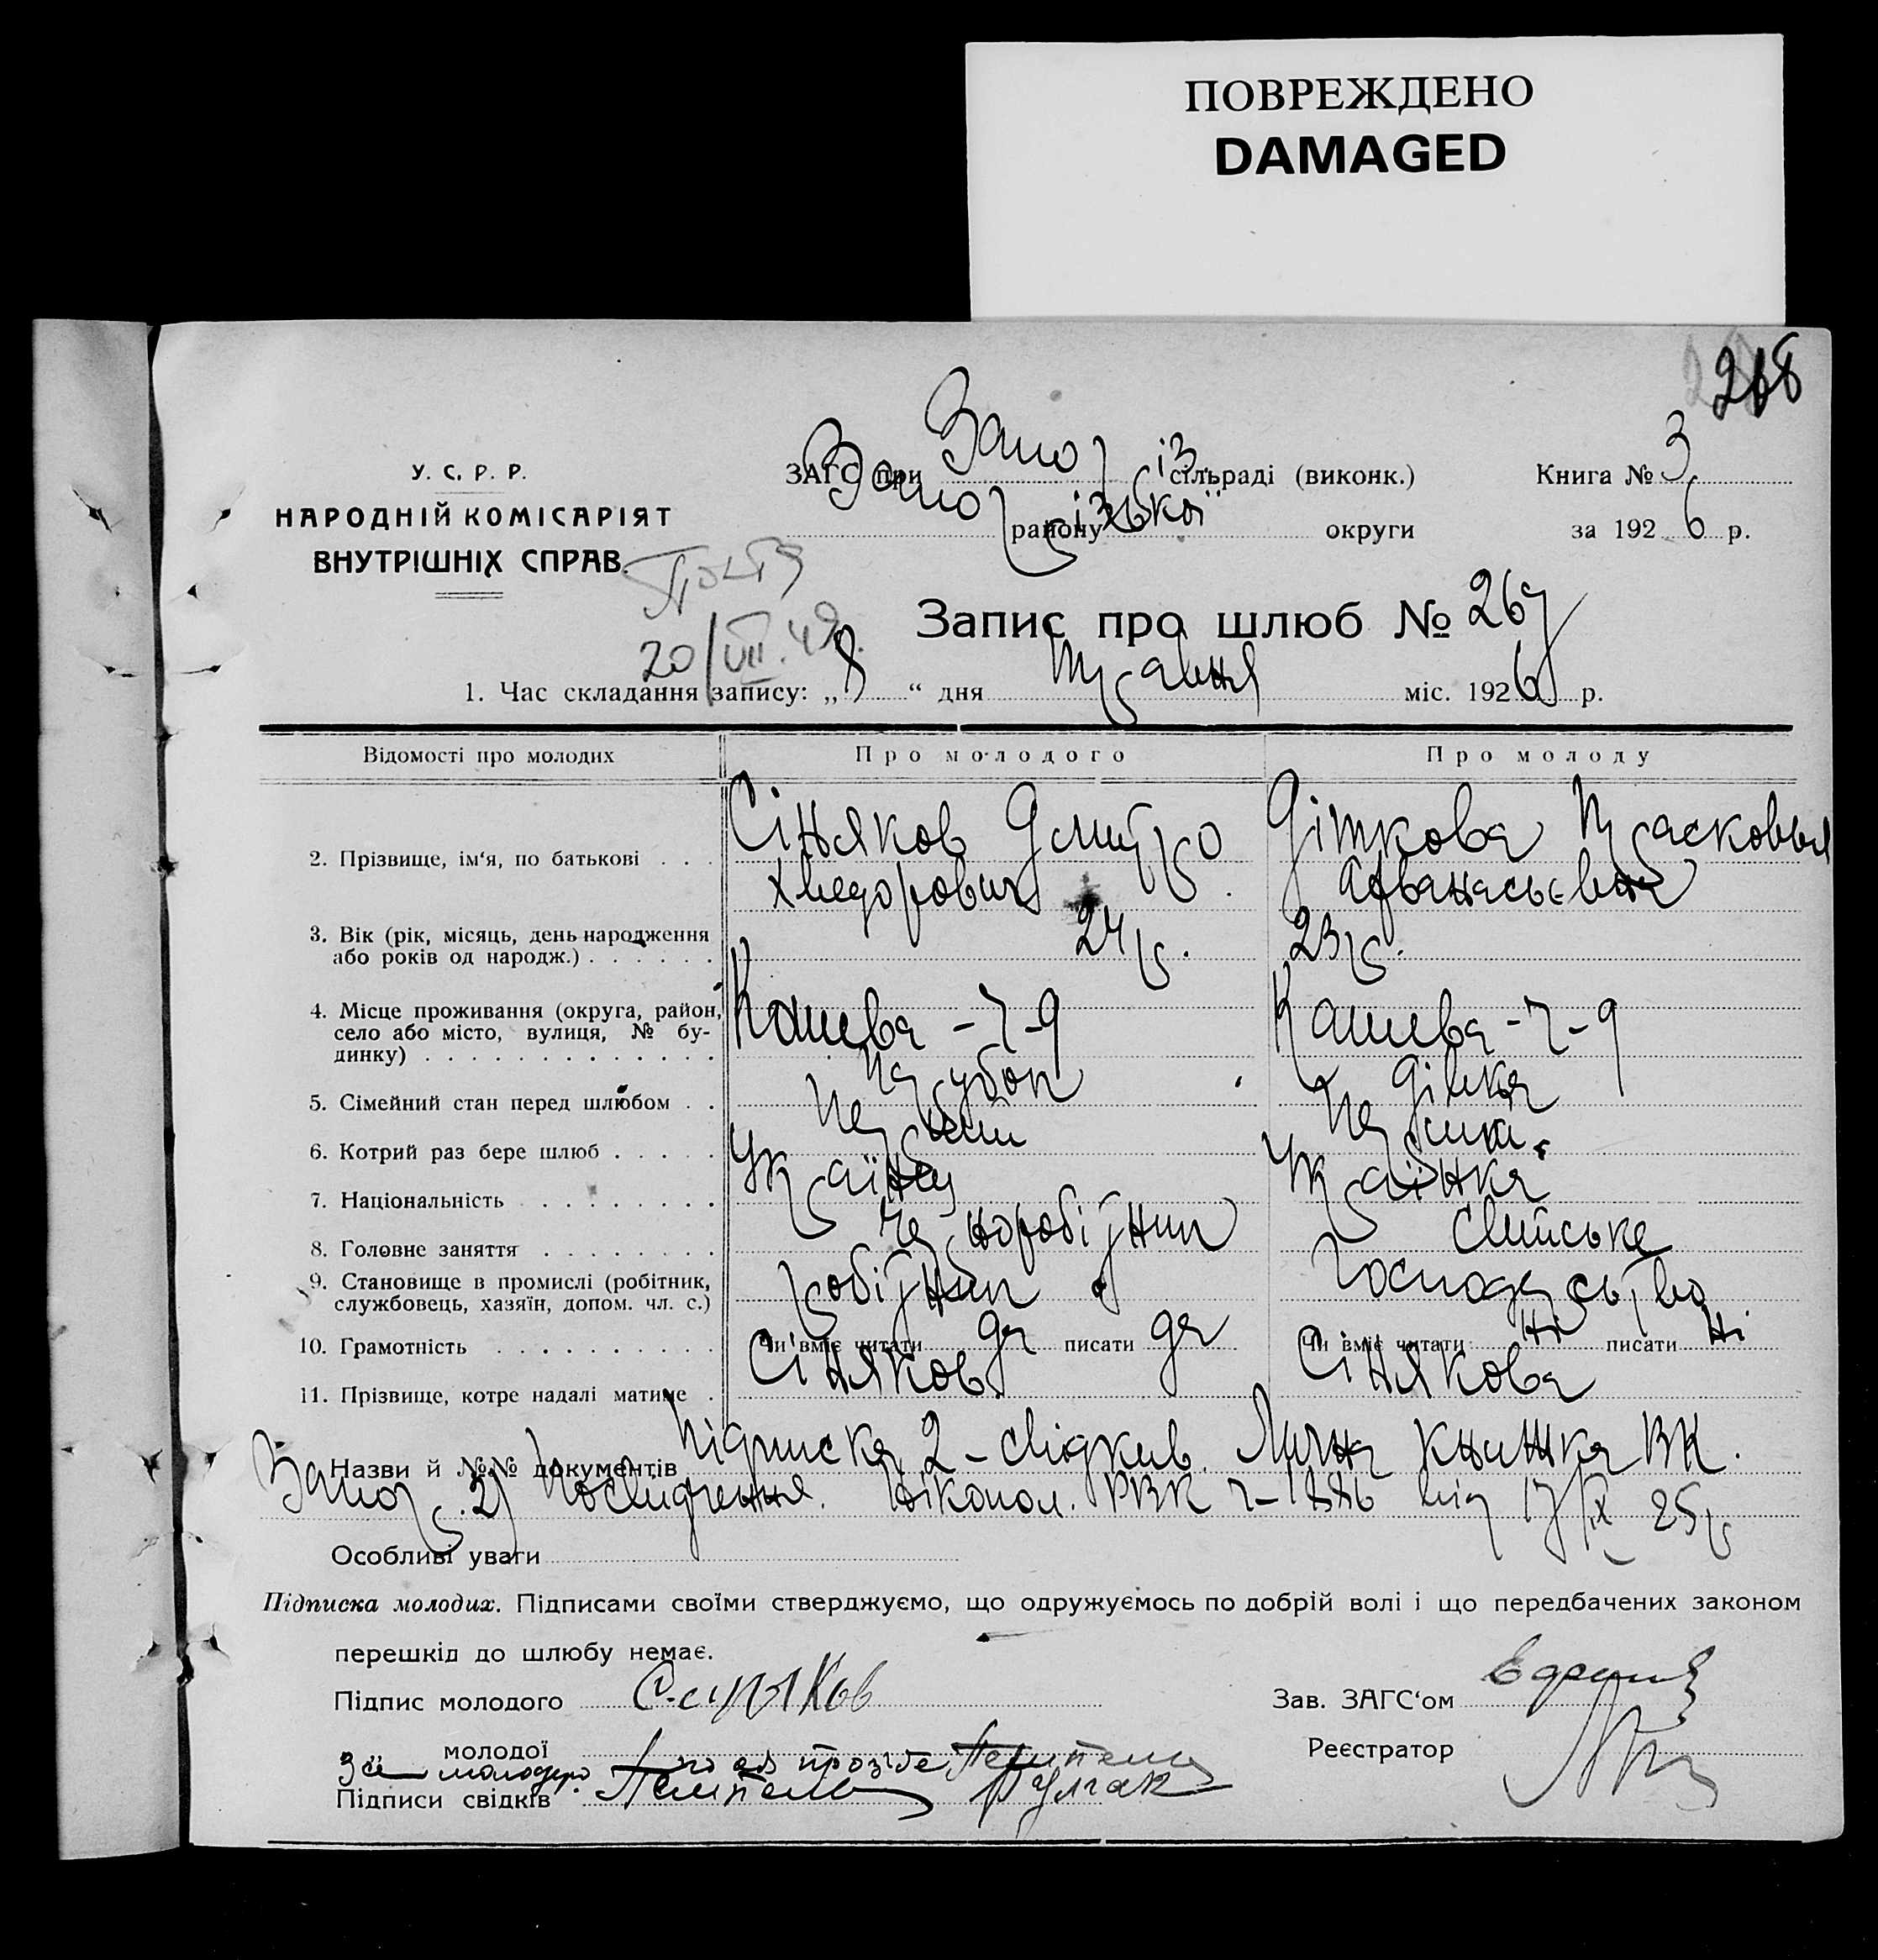 ПОВРЕЖДЕНО
DAMAGED
268
У. С. Р. Р.
НАРОДНІЙ КОМІСАРІЯТ
ВНУТРІШНІХ СПРАВ.
ЗАГС при Запоріз. сільраді (виконк.)
району Запорізької округи
Книга № 3
за 1926 р.
20/VII.49.
Запис про шлюб № 267
1. Час складання запису: „8“ дня Травня міс. 1926 р.
Відомості про молодих
Про молодого
Про молоду
2. Прізвище, ім‘я, по батькові . . .
Сіняков Дмитро
Хведорович
Діткова Прасковья
Афванасьевна
3. Вік (рік, місяць, день народження
або років од народж.) . . . . . .
24 р.
23 р.
4. Місце проживання (округа, район,
село або місто, вулиця, № бу-
динку) . . . . . . . . . . . . .
Кашева - 7 - 9
Кашева - 7 - 9
5. Сімейний стан перед шлюбом . .
Парубок
Дівка
6. Котрий раз бере шлюб . . . . .
Перший
Перший
7. Національність . . . . . . . .
Українец
Українка
8. Головне заняття . . . . . . . .
Черноробітник
Сільське
9. Становище в промислі (робітник,
службовець, хазяїн, допом. чл. с.)
робітник
Господарство
10. Грамотність . . . . . . . . . .
Чи вміє читати да писати да
Чи вміє читати ні писати ні
11. Прізвище, котре надалі матиме .
Сіняков
Сінякова
Назви й №№ документів Підписка 2-свідків. Лична книжка ВК.
Запор. 2) Посвидчення. Нікопол. РВК ч-1886 від 17/IX 25 р
Особливі уваги
Підписка молодих. Підписами своїми стверджуємо, що одружуємось по добрій волі і що передбачених законом
перешкід до шлюбу немає.
Підпис молодого Синяков
Зав. ЗАГС‘ом
молодої
Реєстратор
Підписи свідків Булгак